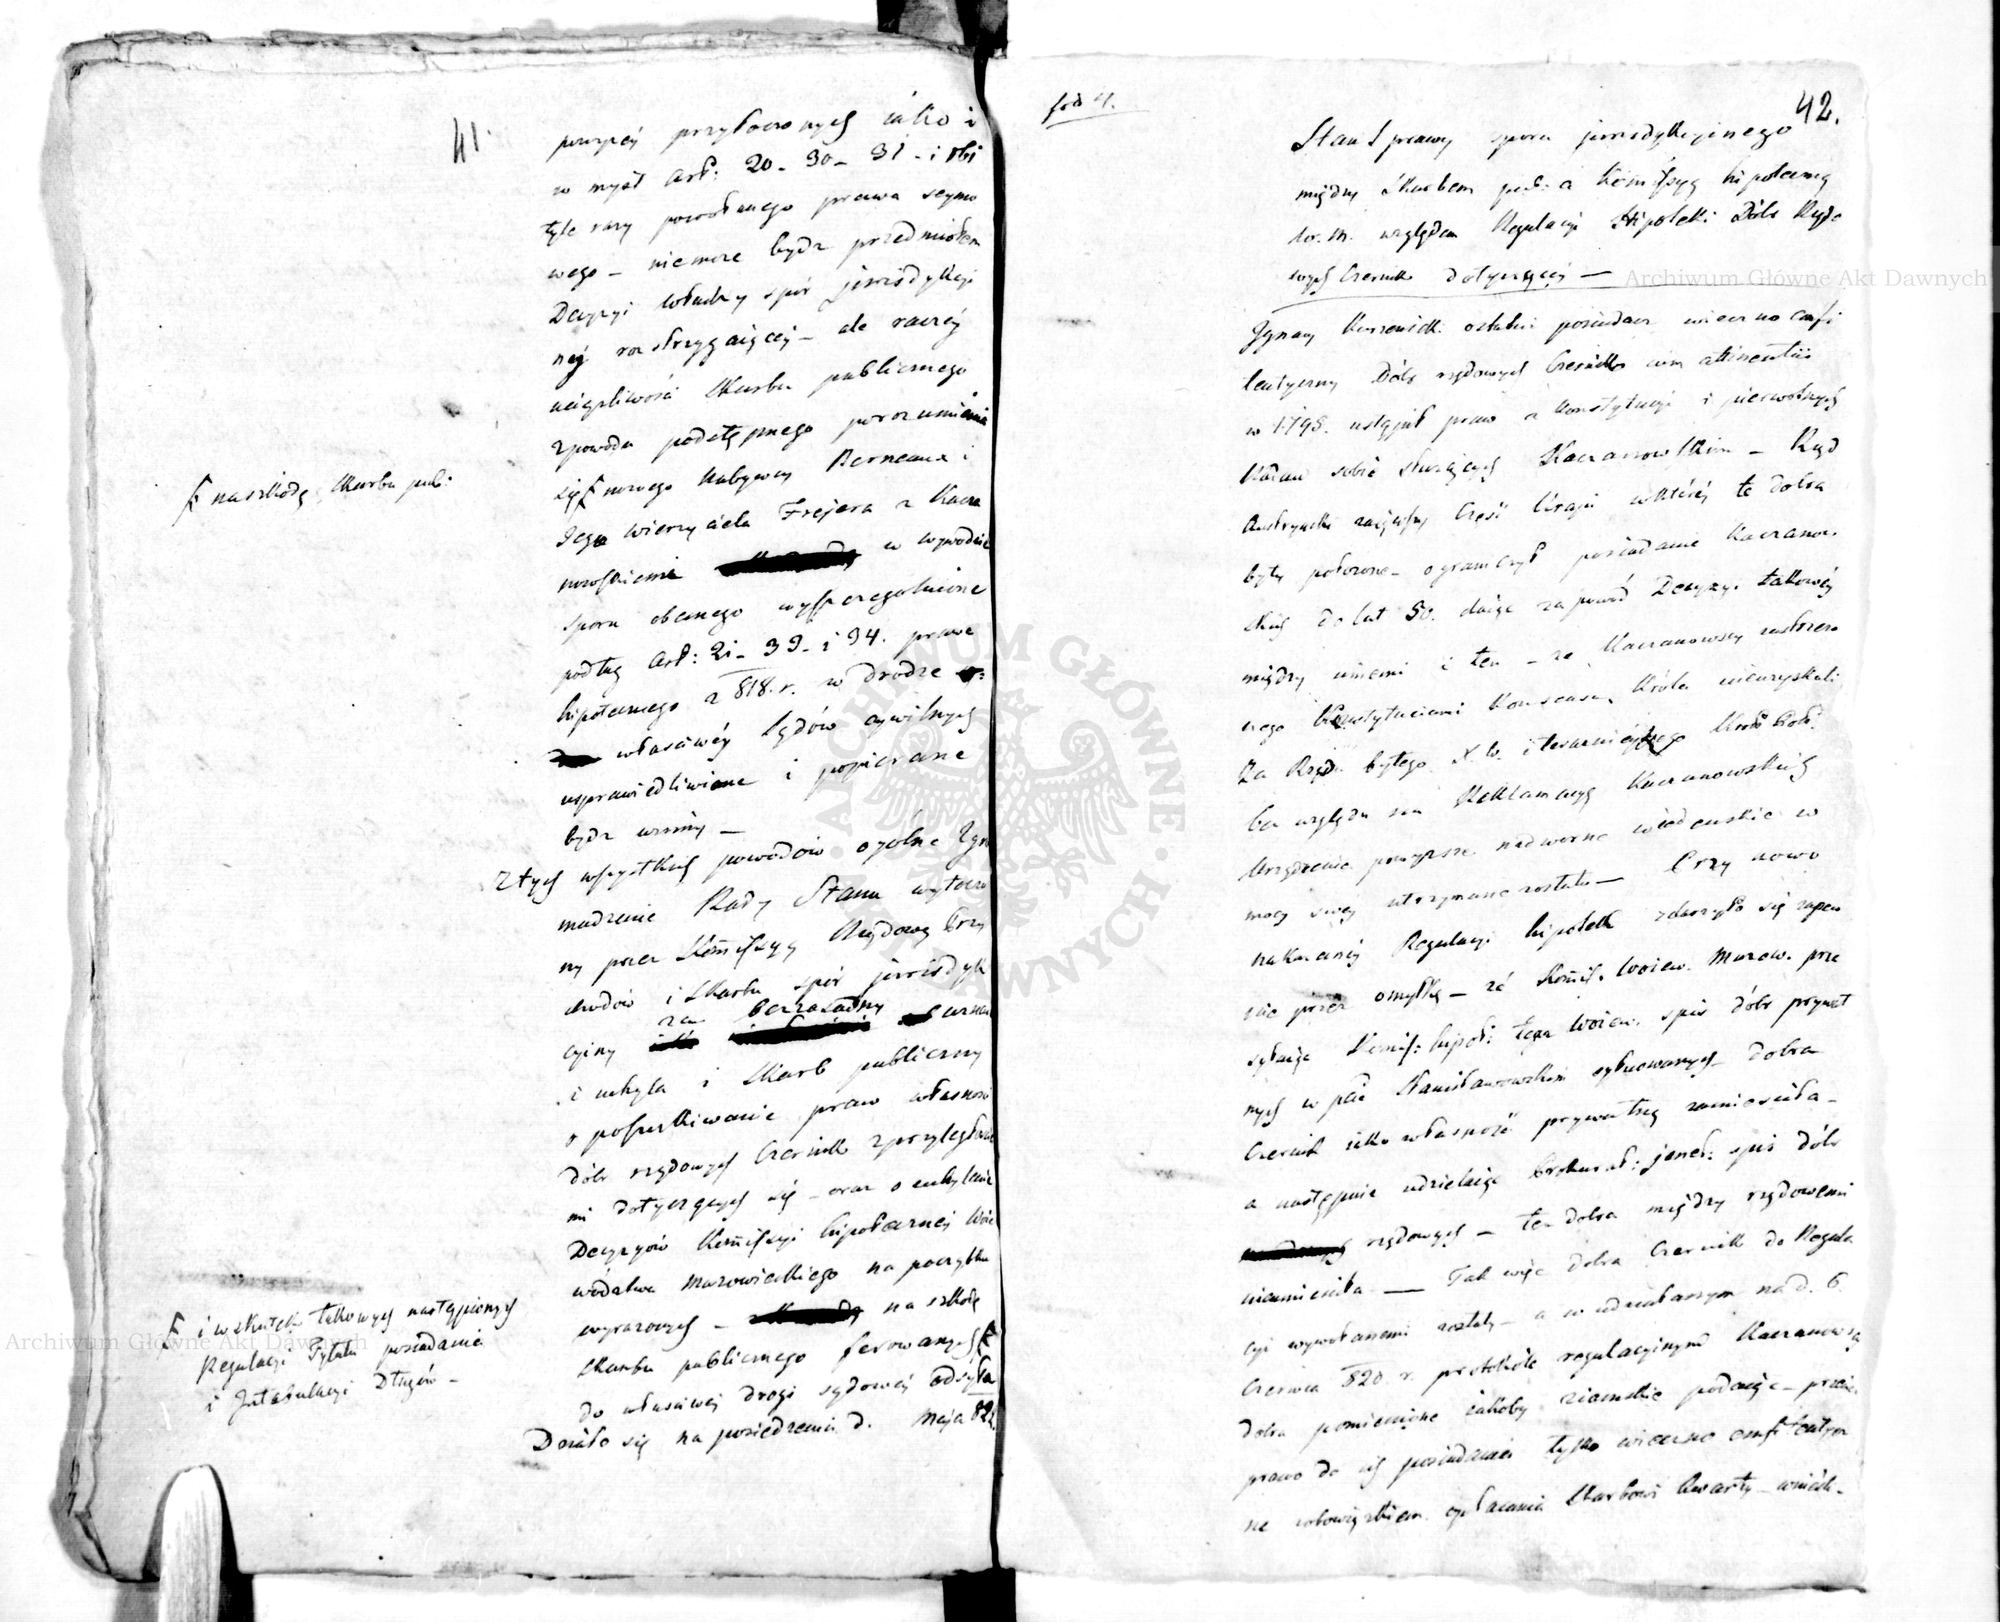 41.
powyżéy przytoczonych iako i
w myśl Art: 20 - 30 - 31 - i
tyle razy powołanego prawa seymo
wego - nie może bydź przedmiotem
Decyzyi władzy spór jurisdykcyi
néy rozstrzygaiącéy - ale raczéy
uciążliwość Skarbu publicznego
zpowodu podstępnego porozumienia
się F nowego Nabywcy Berneaux i
Jego wierzyciela Frejera z Kacza
nowskiemi w wywodzie
sporu obecnego wyszczególnione
podług Art: 21 - 33 - i 34. prawa
hipotecznego z 818. r. w drodze
właściwéy Sądów cywilnych
usprawiedliwione i popierane
bydź winny -
F na szkodę Skarbu publ:
Z tych wszystkich powodów ogólne Zgro
madzenie Rady Stanu wytoczo
ny przez Kommissyą Rządową Przy
chodów i Skarbu spór jurisdyk
cyiny za bezzasadny uznaie
i uchyla i Skarb publiczny
o poszukiwanie praw własności
dóbr rządowych Czernik z przyległościa
mi dotyczących się - oraz o uchylenie
Decyzyów Kommissyi hipoteczney Woie
wództwa Mazowieckiego na początku
wyrażonych - na szkodę
Skarbu publicznego ferowanych F
do właściwéy drogi sądowéy odsyła
Działo się na posiedzeniu d. Maja 82
F i w skutek takowych nastąpionych
Regulacyi Tytułu posiadania
i Intabulacyi Długów -
42.
Stan Sprawy sporu jurisdykcyinego
między Skarbem publ: a Kommissyą hipoteczną
Wo. M. względem Regulacyi Hipoteki Dóbr Rządo
wych Czernik dotyczącéy —
Ignacy Karzewicki ostatni posiadacz wieczno emfi
teutyczny Dóbr rządowych Czernik cum attinentiis
w 1795. ustąpił praw z Konstytucyi i pierwotnych
Nadań sobie służących Kaczanowskim - Rząd
Austryacki zaiąwszy Część Kraju w któréy te dobra
były położone - ograniczył posiadanie Kaczanow
skich do lat 50. daiąc za powód Decyzyi takowéy
między innemi i ten - że Kaczanowscy zastrzeżo
nego Konstytuciami Konsensu Króla nieuzyskali
Za Rządu byłego X. W. i teraźnieyszego Król: Pols:
bez względu na Reklamacyą Kaczanowskich
Urządzenie powyższe nadworne wiedeńskie w
mocy swéy utrzymane zostało — Przy nowo
nakazanéy Regulacyi hipotek zdarzyło się zapew
nie przez omyłkę - że Kommis. Woiew. Mazow. prze
syłaiąc Kommis: hipot: tegoż Woiew. spis dóbr prywat
nych w pcie Stanisławowskim sytuowanych dobra
Czernik iako własność prywatną zamieściła -
a następnie udzielaiąc Prokurat: jener: spis dóbr
rządowych - te dobra między rządowemi
nieumieściła. — Tak więc dobra Czernik do Regula
cyi wywołanemi zostały - a w udziałanym na d. 6.
Czerwca 820. r. protokóle regulacyinym Kaczanowscy
dobra pomienione iakoby ziemskie podaiąc -
prawo do ich posiadania tylko wieczno emfiteutycz
ne z obowiązkiem opłacania Skarbowi Kwarty